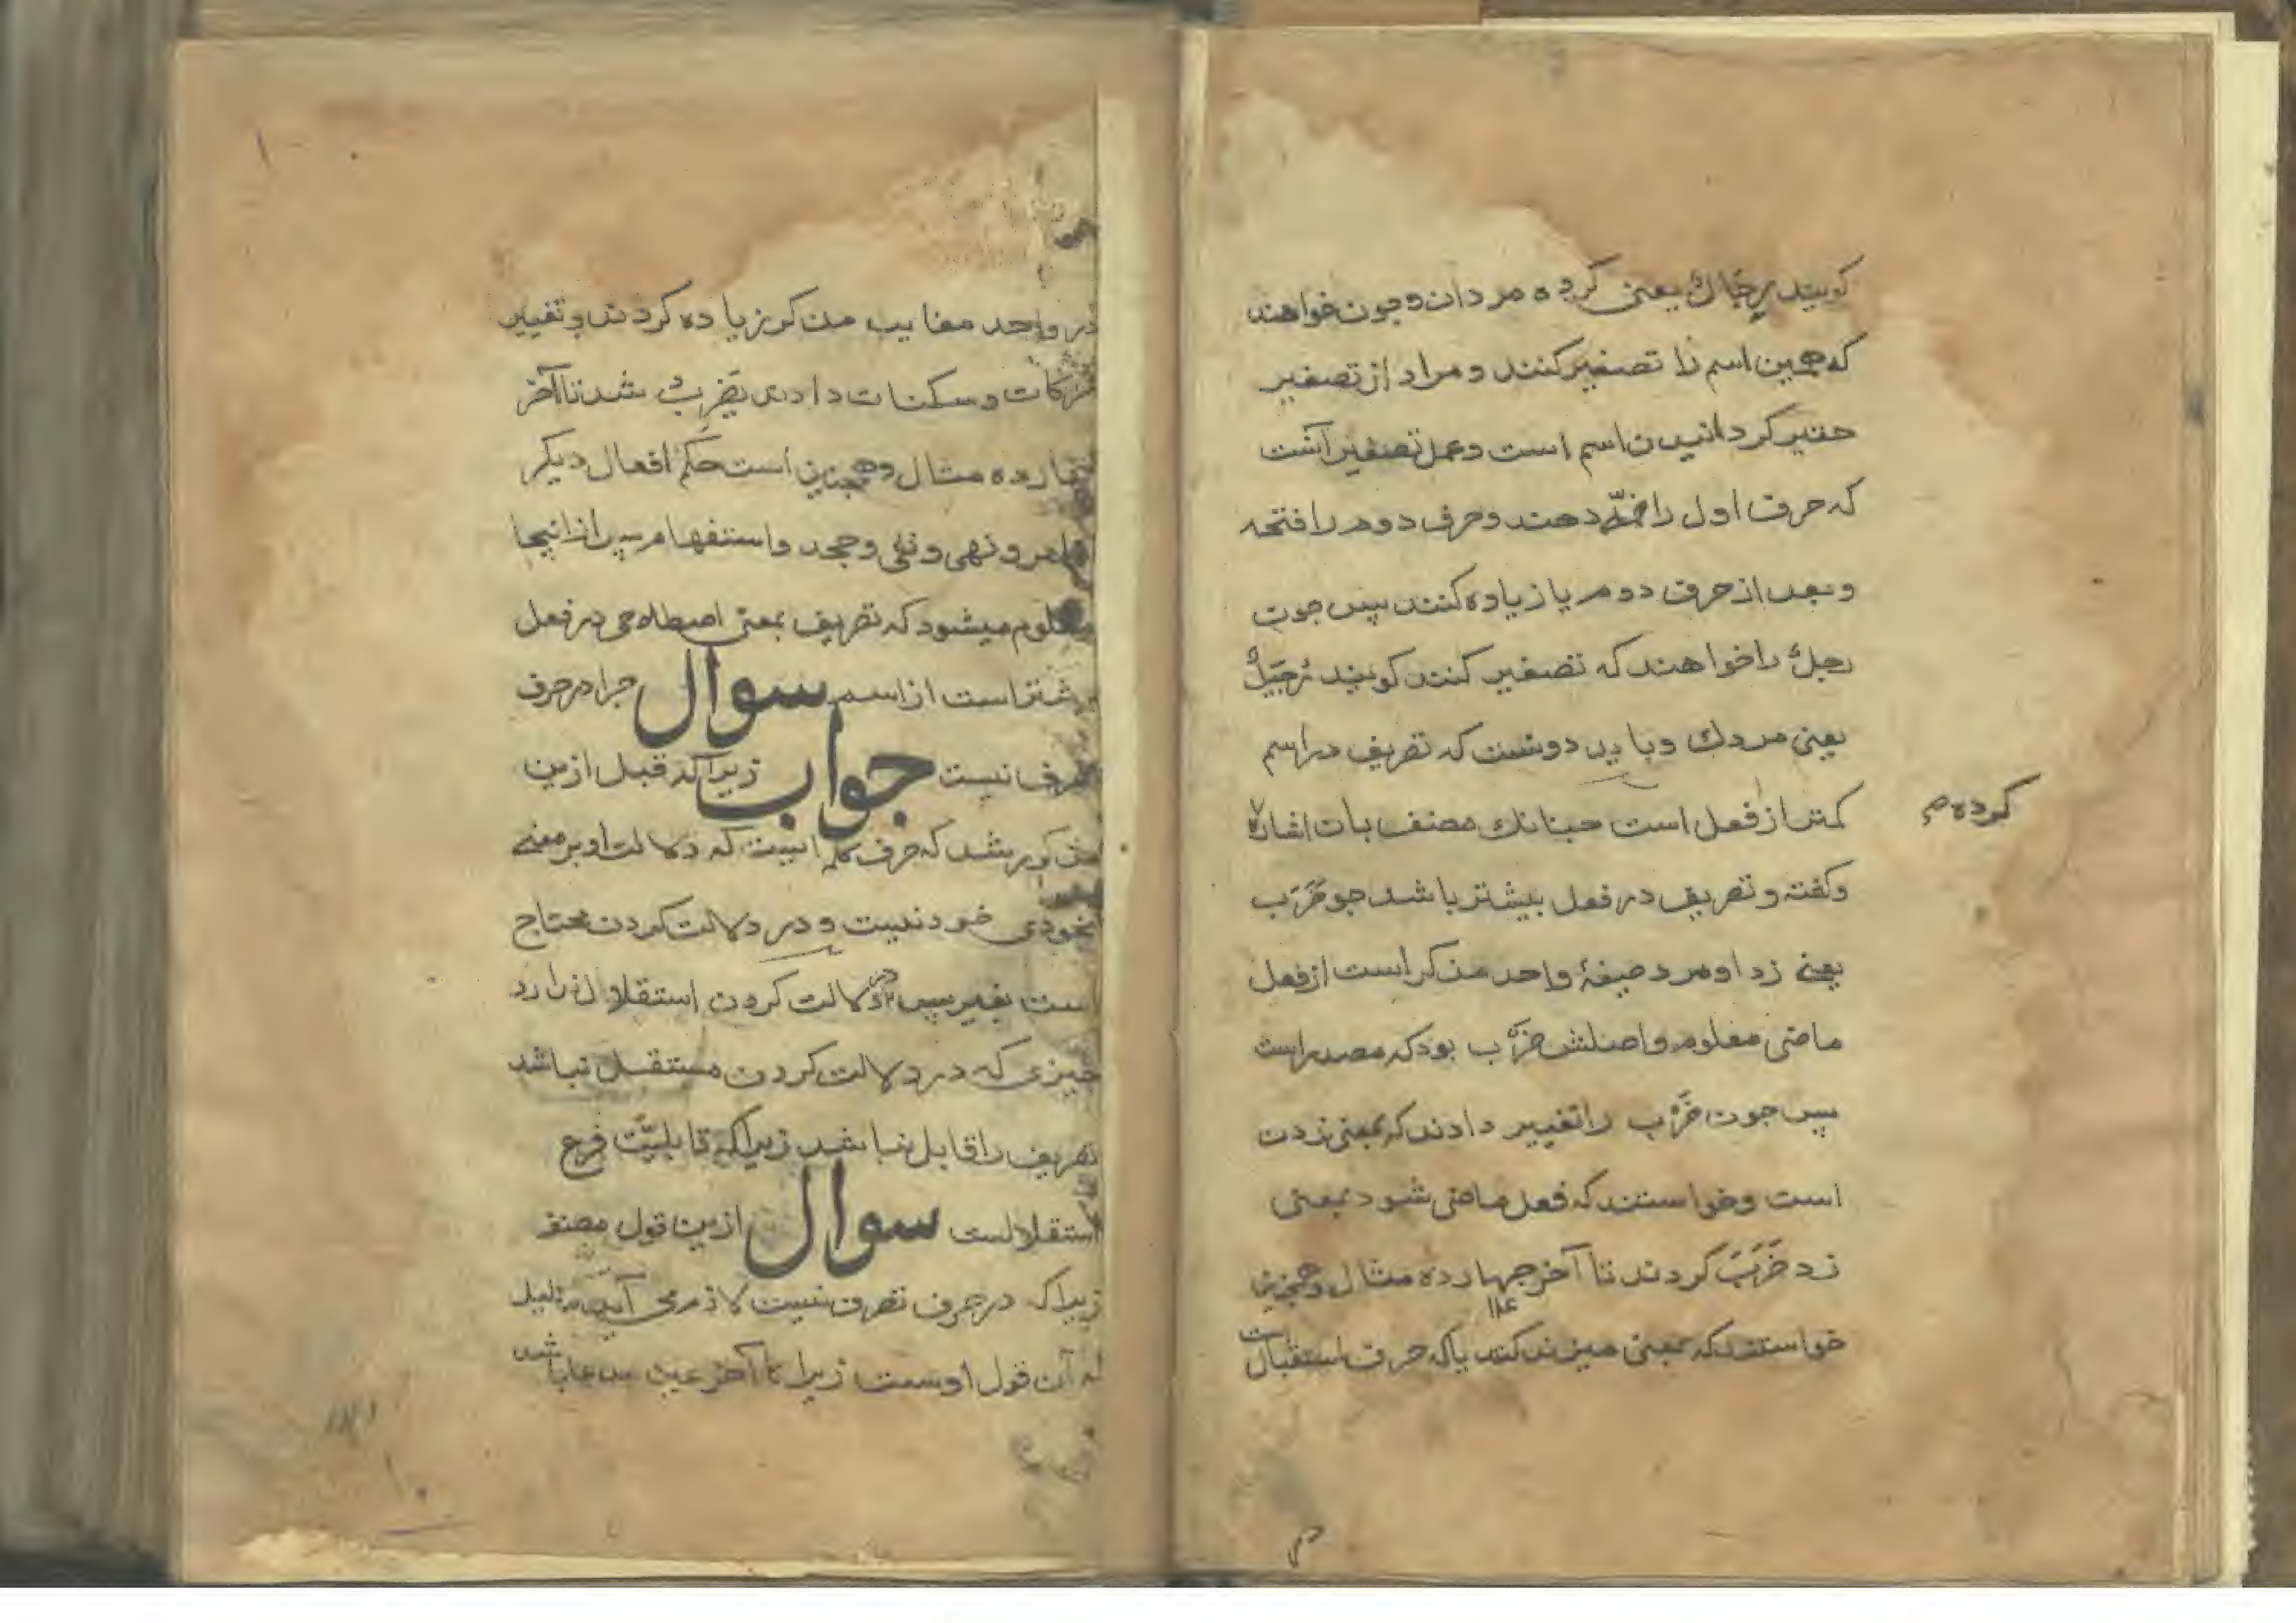 کویند رِجَالٌ یعنی کرده مردان و چون خواهند
که همین اسم را تصغیر کنند و مراد از تصغیر
حقیر کردانیدن اسم است و عمل تصغیر آنست
که حرف اول را ضمّه دهند و حرف دوم را فتحه
و بعد از حرف دوم یا زیاده کنند پس چون
رجلٌ را خواهند که تصغیر کنند کویند رُجَیْلٌ
یعنی مردك و باید دونست که تصریف در اسم
کمتر از فعل است چنانك مصنف بات اشاره
کرده م
و کفته و تصریف در فعل بیشتر باشد چو ضَرَبَ
یعنی زد او مرد صیغهٔ واحد مذکر است از فعل
ماضی معلوم و اصلش ضَرْب بود که مصدر است
پس چون ضَرْب را تغییر دادند که بمعنی زدن
است و خواستند که فعل ماضی شود بمعنی
زد ضَرَبَ کردند تا آخر چهارده مثال و همچنین
خواستند که بمعنی میزند کنند یا که حرف استقبالست
در واحد مغایب مذکر زیاده کردند و تغییر
حرکات و سکنات دادند یَضْرِبُ شد تا آخر
چهارده مثال و همچنین است حکم افعال دیکر
امر و نهی و نفی و جحد و استفهام پس از اینجا
معلوم میشود که تصریف بمعنی اصطلاحی در فعل
بیشتر است از اسم سوال چرا در حرف
تصرف نیست جواب زیرا که قبل ازین
مذکور شد که حرف کلمه ایست که دلالت او بر معنی
بخودی خود نیست و در دلالت کردن محتاج
است بغیر پس در دلالت کردن استقلال ندارد
چیزی که در دلالت کردن مستقل نباشد
تصریف را قابل نباشد زیرا که قابلیّت فرع
استقلالست سوال ازین قول مصنف
زیرا که در حرف تصرف نیست لازم می آید
که آن قول اوست زیرا تا آخر عین مدعا باشد